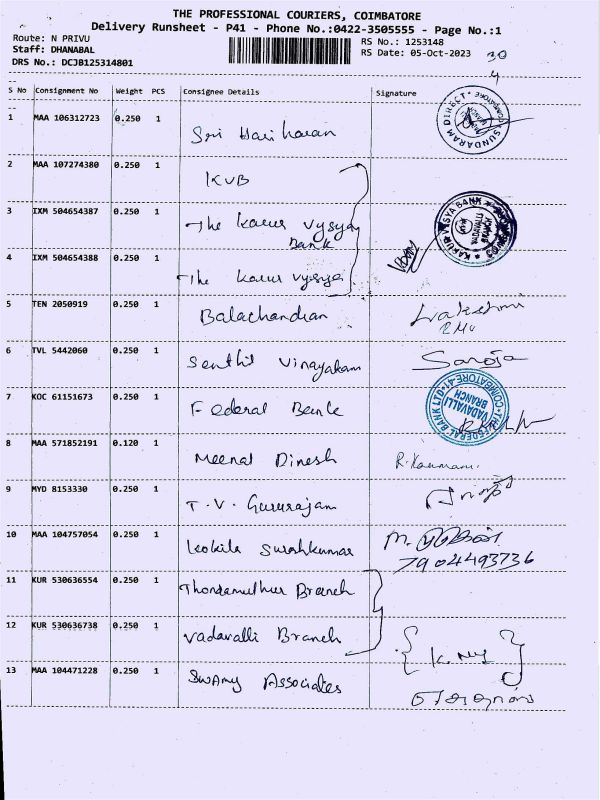 THE PROFESSIONAL COURIERS, COIMBATORE
Delivery Runsheet - P41 - Phone No.:0422-3505555 - Page No.:1
Route: N PRIVU
Staff: DHANABAL
DRS No.: DCJB125314801
RS No.: 1253148
RS Date: 05-Oct-2023
30
4
S No Consignment No Weight PCS Consignee Details Signature
1 MAA 106312723 0.250 1 Sri Hari haran
SUNDARAM DIRECT COIMBATORE
2 MAA 107274380 0.250 1 KVB
3 IXM 504654387 0.250 1 The karur vysya
Bank
KARUR VYSYA BANK
VADAVALLI
BRANCH
4 IXM 504654388 0.250 1 The karur vysya
5 TEN 2050919 0.250 1 Balachandran Lakshmi
6 TVL 5442060 0.250 1 Senthil Vinayakam Saroja
7 KOC 61151673 0.250 1 Federal Bank
THE FEDERAL BANK LTD COIMBATORE-41
VADAVALLI
BRANCH
8 MAA 571852191 0.120 1 Meenal Dinesh R. Kaumani.
9 MYD 8153330 0.250 1 T. V. Gururajam
10 MAA 104757054 0.250 1 kokila Sureshkumar M.
7904493736
11 KUR 530636554 0.250 1 Thondamuthur Branch
12 KUR 530636738 0.250 1 Vadavalli Branch
13 MAA 104471228 0.250 1 Swamy Associates